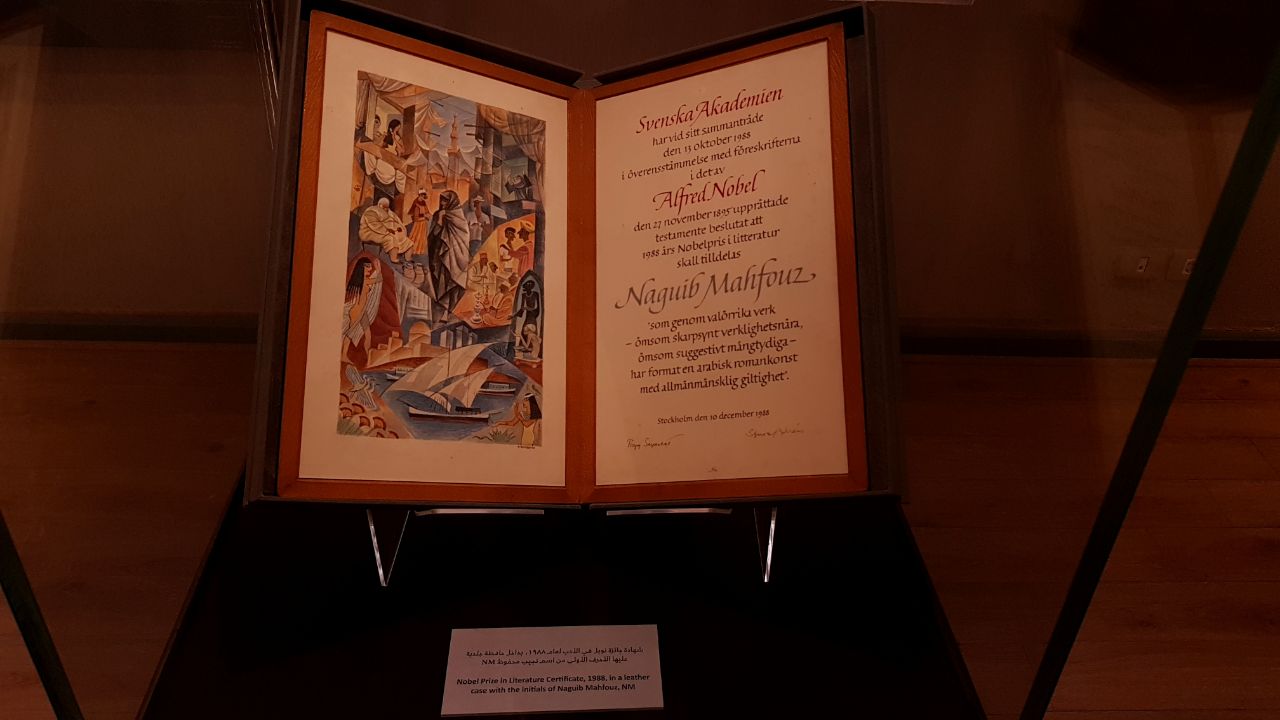 Svenska Akademien
har vid sitt sammanträde
den 13 oktober 1988
i överensstämmelse med föreskrifterna
i det av
Alfred Nobel
den 27 november 1895 upprättade
testamente beslutat att
1988 års Nobelpris i litteratur
skall tilldelas
Naguib Mahfouz
"som genom valörrika verk
– ömsom skarpsynt verklighetsnära,
ömsom suggestivt mångtydiga –
har format en arabisk romankonst
med allmänmänsklig giltighet".
Stockholm den 10 december 1988
شهادة جائزة نوبل في الأدب لعام ١٩٨٨، بداخل حافظة جلدية
عليها الحرف الأولى من اسم نجيب محفوظ NM
Nobel Prize in Literature Certificate, 1988, in a leather
case with the initials of Naguib Mahfouz, NM